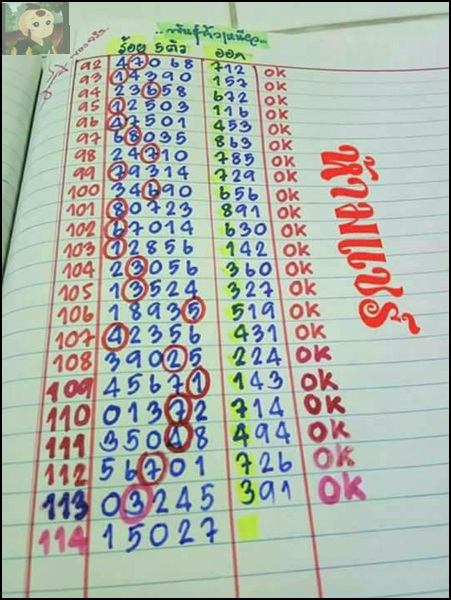 ..พันธุ์ข้าวเหนียว...
ร้อย 5 ตัว ออก
92 47068 712 OK
93 14390 157 OK
94 23658 672 OK
95 12503 116 OK
96 47501 453 OK
97 68035 863 OK
98 24710 785 OK
99 79314 729 OK
100 34690 656 OK
101 80723 891 OK
102 67014 630 OK
103 12856 142 OK
104 23056 360 OK
105 13524 327 OK
106 18935 519 OK
107 42356 431 OK
108 39025 224 OK
109 45671 143 OK
110 01372 714 OK
111 35048 494 OK
112 56701 726 OK
113 03245 391 OK
114 15027
ห้ามแชร์